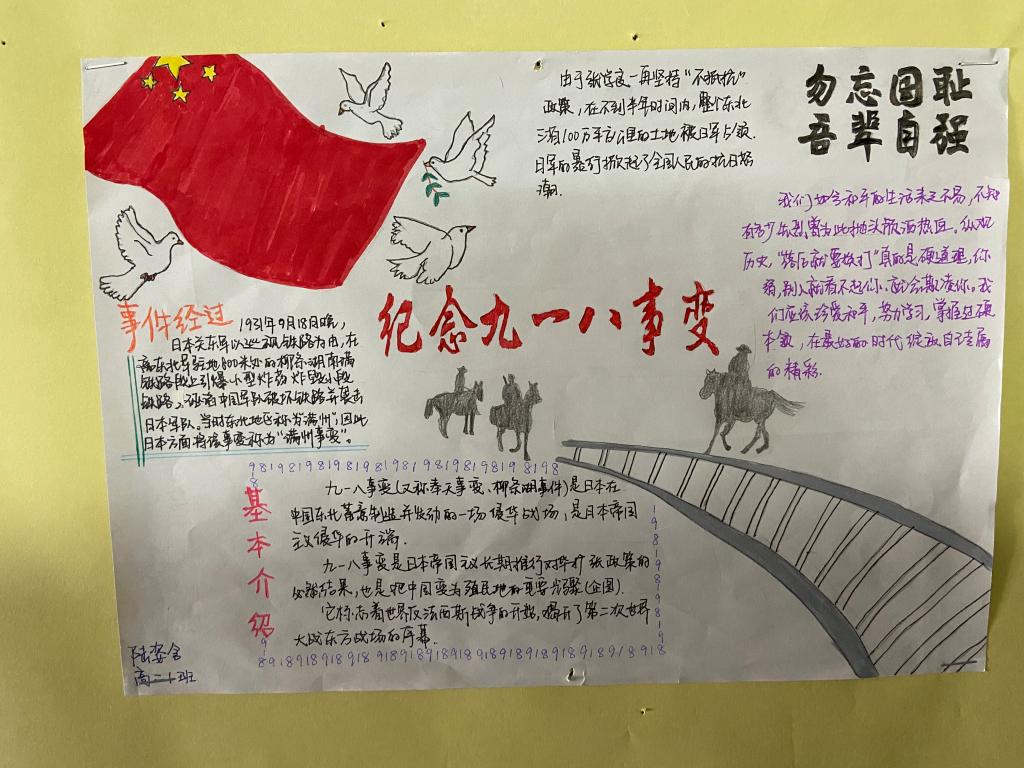 勿忘国耻
吾辈自强
由于张学良一再坚持“不抵抗”
政策，在不到半年时间内，整个东北
三省100万平方公里的土地被日军占领.
日军的暴行掀起了全国人民的抗日怒
潮.
我们如今和平的生活来之不易，不知
有多少先烈曾为此抛头颅洒热血。纵观
历史，“落后就要挨打”真的是硬道理，你
弱，别人就看不起你、就会欺凌你。我
们应该珍爱和平，努力学习，掌握过硬
本领，在最好的时代绽放自己专属
的精彩.
纪念九一八事变
事件经过
1931年9月18日晚，
日本关东军以巡视铁路为由，在
东北军驻地800米处的柳条湖南满
铁路段上引爆小型炸药炸毁小段
铁路，诬陷中国军队破坏铁路并袭击
日本军队。当时东北地区称为“满州”，因此
日本方面将该事变称为“满州事变”。
基本介绍
九一八事变(又称奉天事变、柳条湖事件)是日本在
中国东北蓄意制造并发动的一场侵华战场，是日本帝国
主义侵华的开端.
九一八事变是日本帝国主义长期推行对华扩张政策的
必然结果，也是把中国变为殖民地的重要步骤(企图).
它标志着世界反法西斯战争的开始，揭开了第二次世界
大战东方战场的序幕.
高二十班